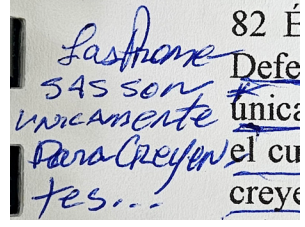 Las Prome
sas son
unicamente
Para Creyen
tes...
82 É
Defe
única
el cu
creye